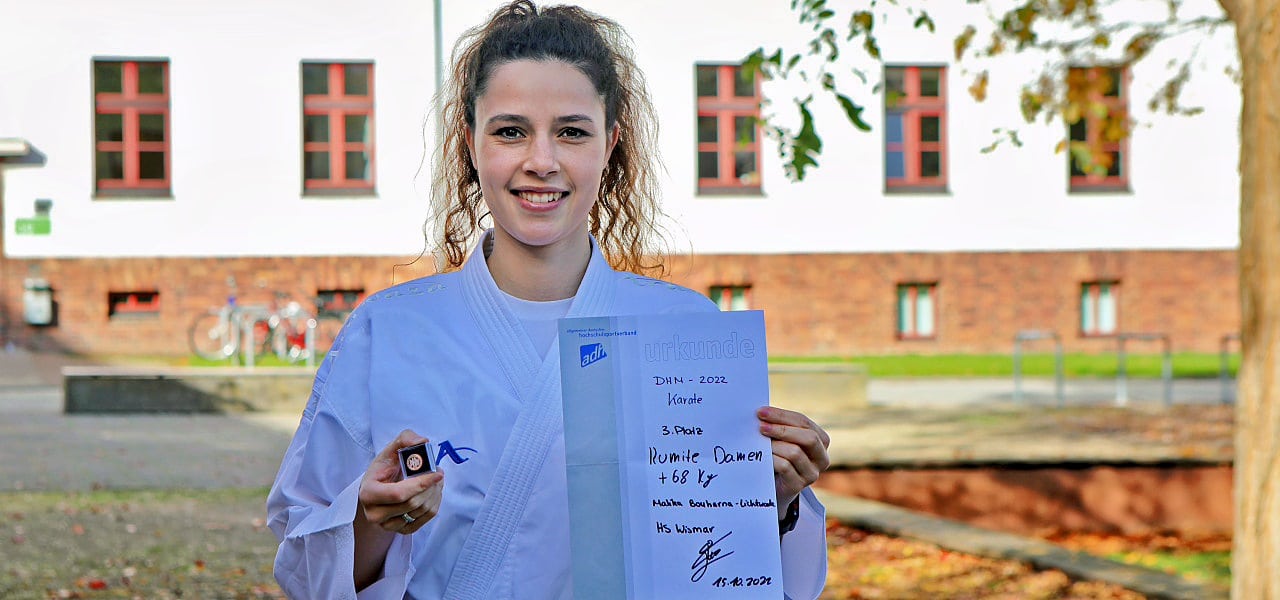 allgemeiner deutscher
hochschulsportverband
adh
urkunde
DHM - 2022
Karate
3. Platz
Kumite Damen
+68 Kg
Malika Bouharna
HS Wismar
15.10.2022